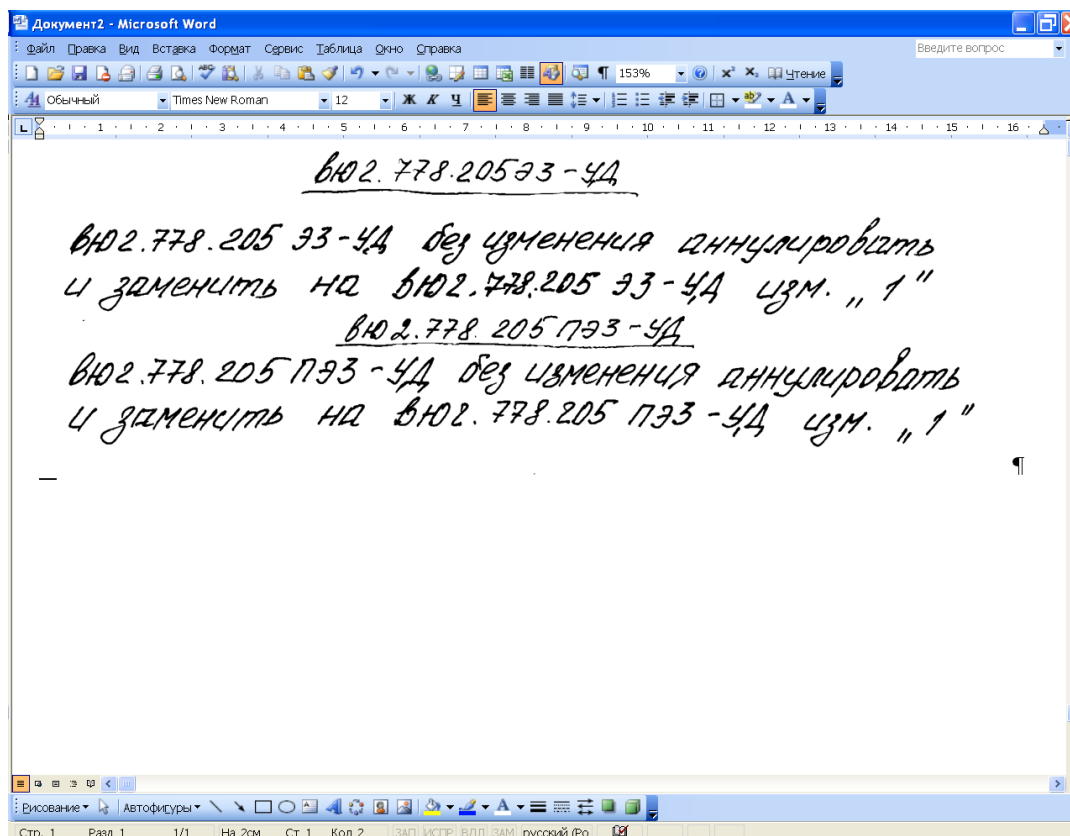 Документ2 - Microsoft Word
Файл Правка Вид Вставка Формат Сервис Таблица Окно Справка Введите вопрос
153% Чтение
Обычный Times New Roman 12 Ж К Ч
1 2 3 4 5 6 7 8 9 10 11 12 13 14 15 16
вю2.778.205ЭЗ-УД
вю2.778.205 ЭЗ-УД без изменения аннулировать
и заменить на вю2.778.205 ЭЗ-УД изм. „1"
вю2.778.205 ПЭЗ-УД
вю2.778.205 ПЭЗ-УД без изменения аннулировать
и заменить на вю2.778.205 ПЭЗ-УД изм. „1"
¶
Рисование Автофигуры
Стр. 1 Разд 1 1/1 На 2см Ст 1 Кол 2 ЗАП ИСПР ВДЛ ЗАМ русский (Ро